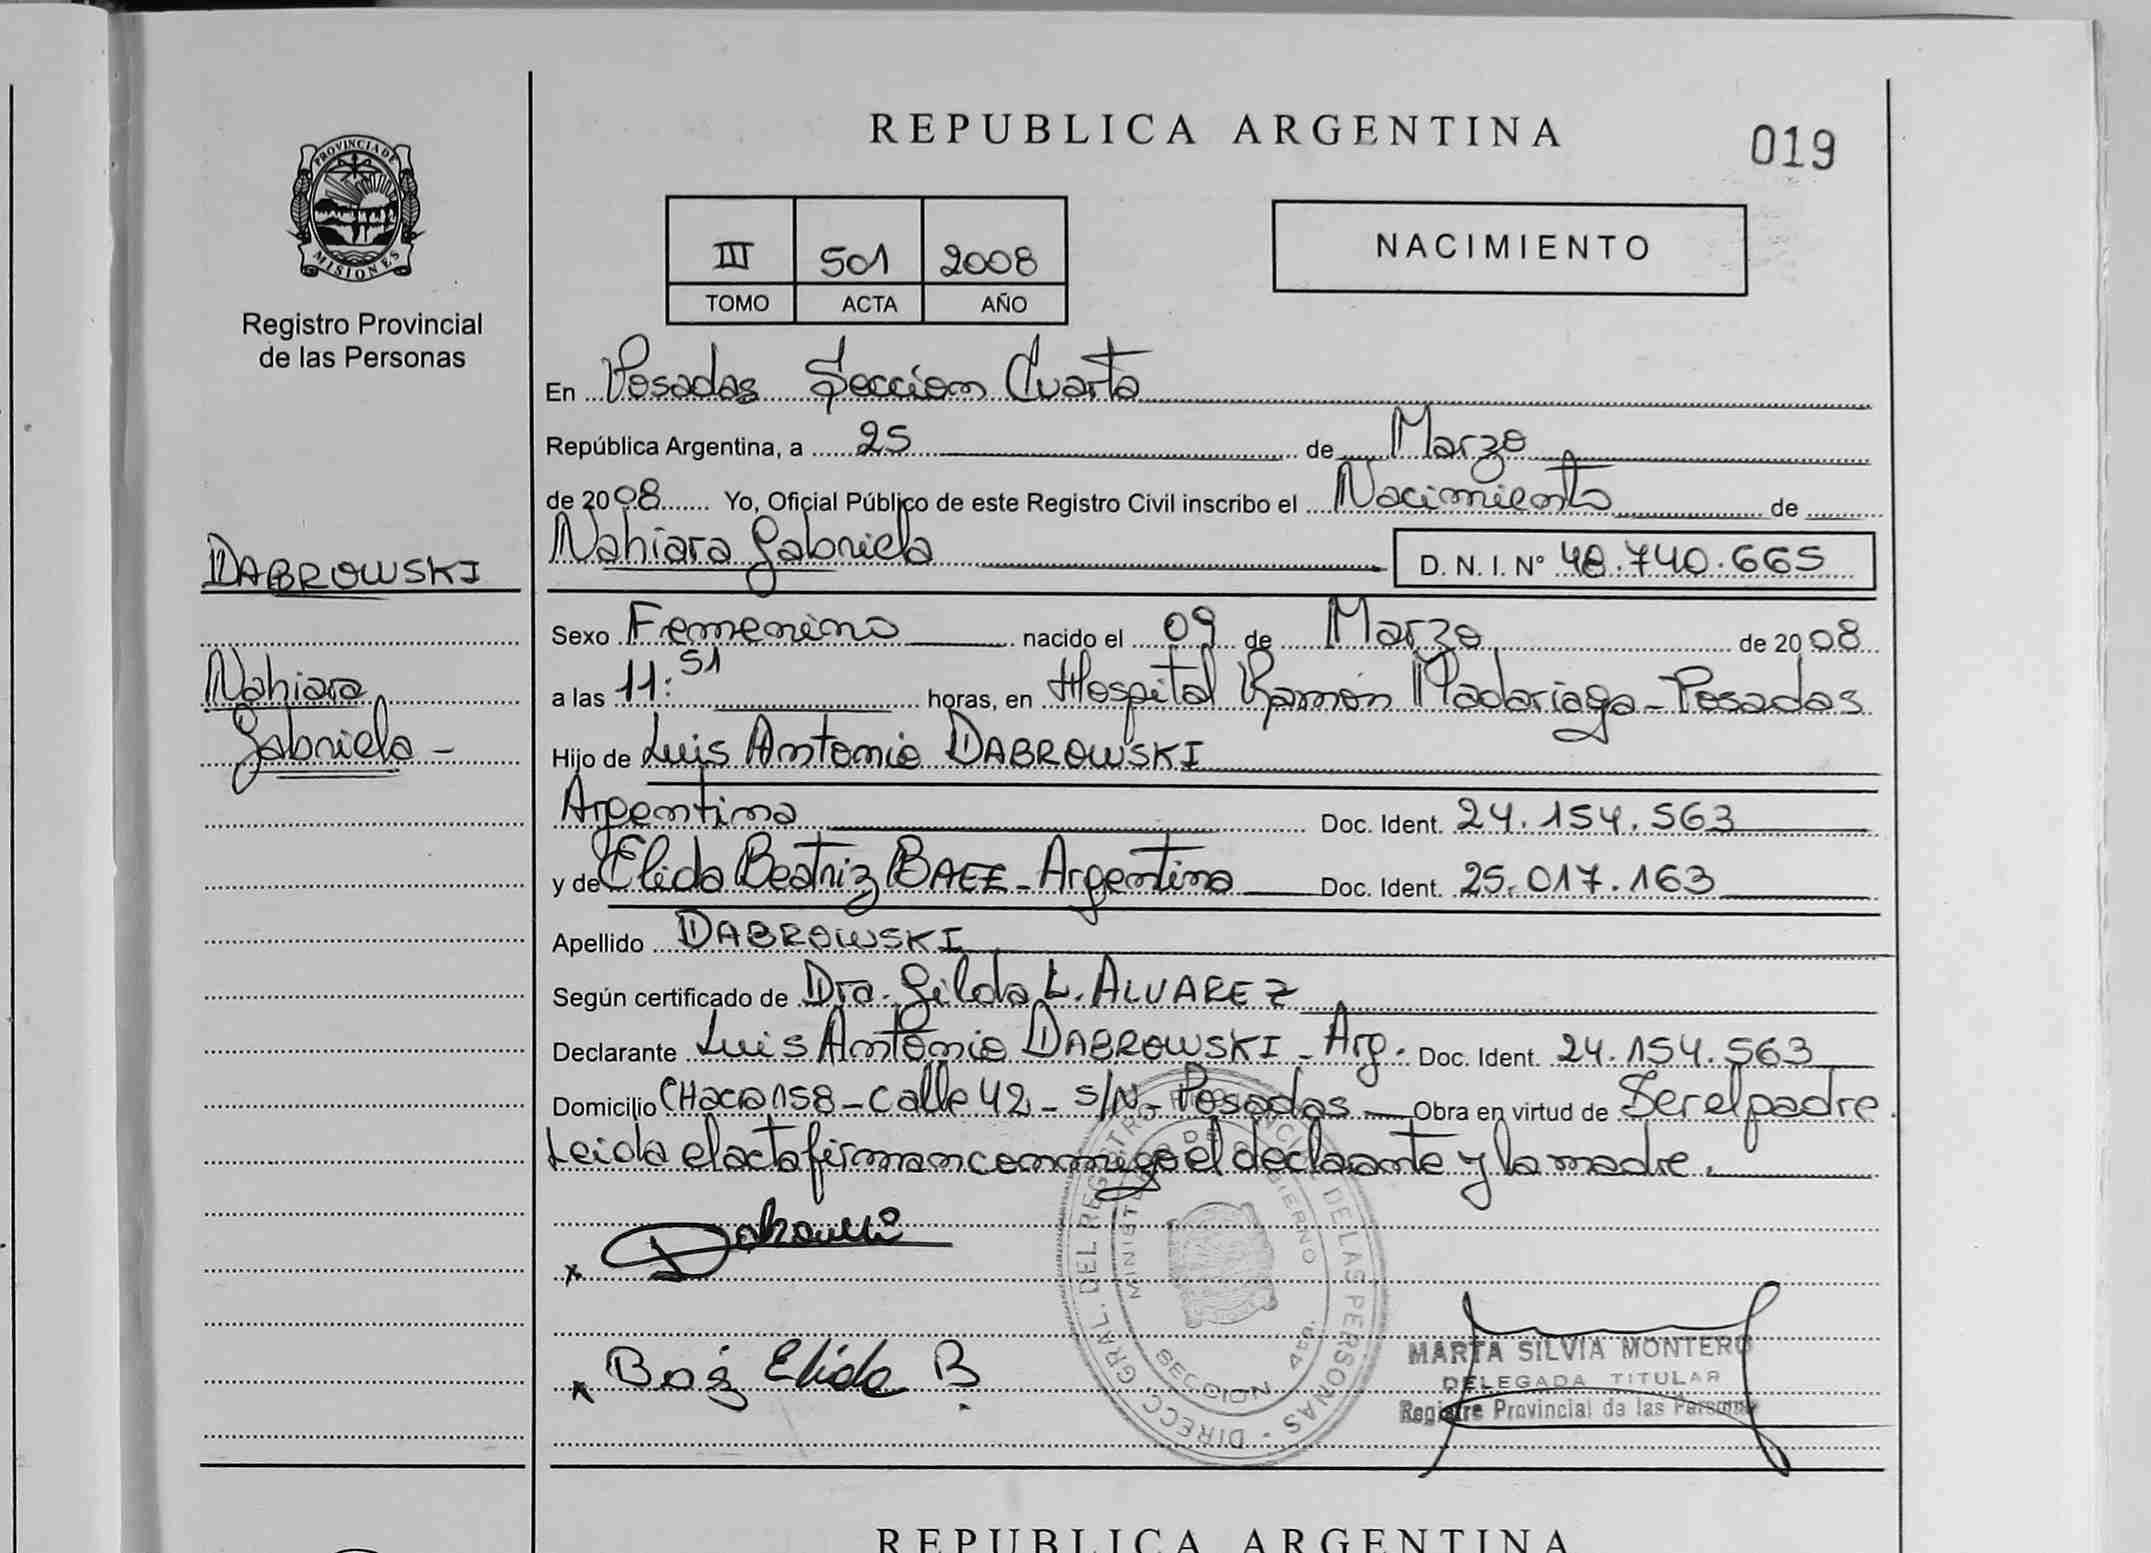 PROVINCIA DE
MISIONES
Registro Provincial
de las Personas
DABROWSKI
Nahiara
Gabriela -
REPUBLICA ARGENTINA
019
III 501 2008
TOMO ACTA AÑO
NACIMIENTO
En Posadas Seccion Cuarta
República Argentina, a 25 de Marzo
de 2008 Yo, Oficial Público de este Registro Civil inscribo el Nacimiento de
Nahiara Gabriela D. N. I. N° 48.740.665
Sexo Femenino nacido el 09 de Marzo de 2008
a las 11:51 horas, en Hospital Ramón Madariaga - Posadas
Hijo de Luis Antonio DABROWSKI
Argentina Doc. Ident. 24.154.563
y de Elida Beatriz BAEZ - Argentina Doc. Ident. 25.017.163
Apellido DABROWSKI
Según certificado de Dra. Gilda L. ALVAREZ
Declarante Luis Antonio DABROWSKI - Arg. Doc. Ident. 24.154.563
Domicilio CHacra 158 - Calle 42 - S/N - Posadas Obra en virtud de Ser el padre.
Leida el acta firman conmigo el declarante y la madre.
x
x Baez Elida B.
DIRECC GRAL. DEL REGISTRO PROVINCIAL DE LAS PERSONAS -
MINISTERIO DE GOBIERNO
SECCION 4ta.
MARTA SILVIA MONTERO
DELEGADA TITULAR
Registro Provincial de las Personas
REPUBLICA ARGENTINA